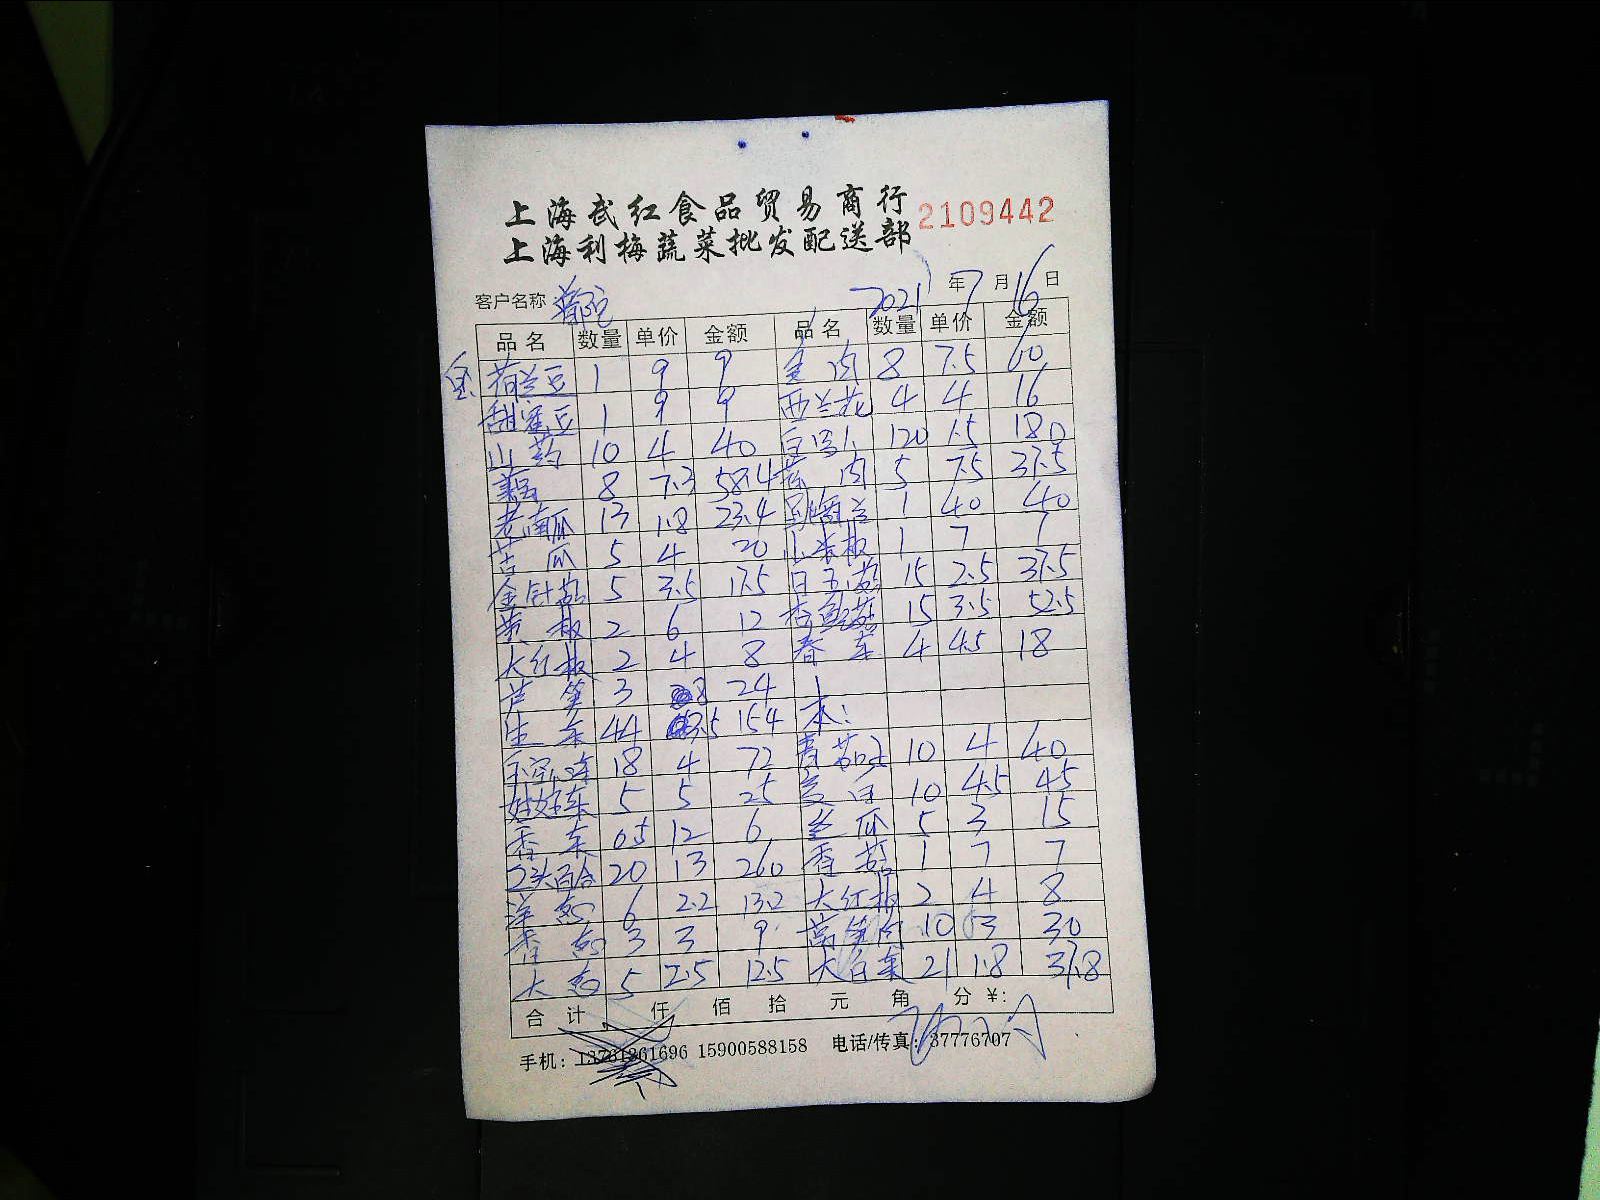 上海武红食品贸易商行
上海利梅蔬菜批发配送部
2109442
客户名称 2021年7月16日
品名 数量 单价 金额 品名 数量 单价 金额
荷兰豆 1 9 9 肉 8 7.5 60
甜蜜豆 1 9 9 西兰花 4 4 16
山药 10 4 40 120 1.5 180
8 7.3 58.4 肉 5 7.5 37.5
老南瓜 13 1.8 23.4 1 40 40
苦瓜 5 4 20 小米椒 1 7 7
金针菇 5 3.5 17.5 白玉菇 15 2.5 37.5
黄椒 2 6 12 杏鲍菇 15 3.5 52.5
大红椒 2 4 8 4 4.5 18
芦笋 3 8 24
生菜 44 3.5 154 本:
18 4 72 10 4 40
5 5 25 茭白 10 4.5 45
香菜 0.5 12 6 丝瓜 5 3 15
百合 20 13 260 香菇 1 7 7
洋葱 6 2.2 13.2 大红椒 2 4 8
香葱 3 3 9 莴笋肉 10 3 30
大葱 5 2.5 12.5 大白菜 21 1.8 37.8
合计 仟 佰 拾 元 角 分 ¥:
手机: 13761361696 15900588158 电话/传真: 37776707